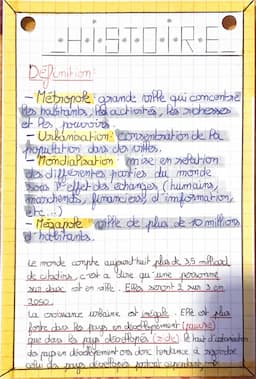 HISTOIRE
Définition:
- Métropole: grande ville qui concentre
les habitants, les activités, les richesses
et les pouvoirs.
- Urbanisation: concentration de la
population dans des villes.
- Mondialisation: mise en relation
des différentes parties du monde
sous l'effet des échanges (humains,
marchands, financiers d'information,
etc...)
- Mégapole: ville de plus de 10 millions
d'habitants.
Le monde compte aujourd'hui plus de 3,5 milliard
de citadins, c-est a dire qu'une personne
sur deux est en ville. Elles seront 2 sur 3 en
2050.
La croissance urbaine est inégale. Elle est plus
forte dans les pays en développement (pauvre)
que dans les pays développés (riche) le taux d'urbanisation
des pays en développement ont donc tendance à rejoindre
celui des pays développés